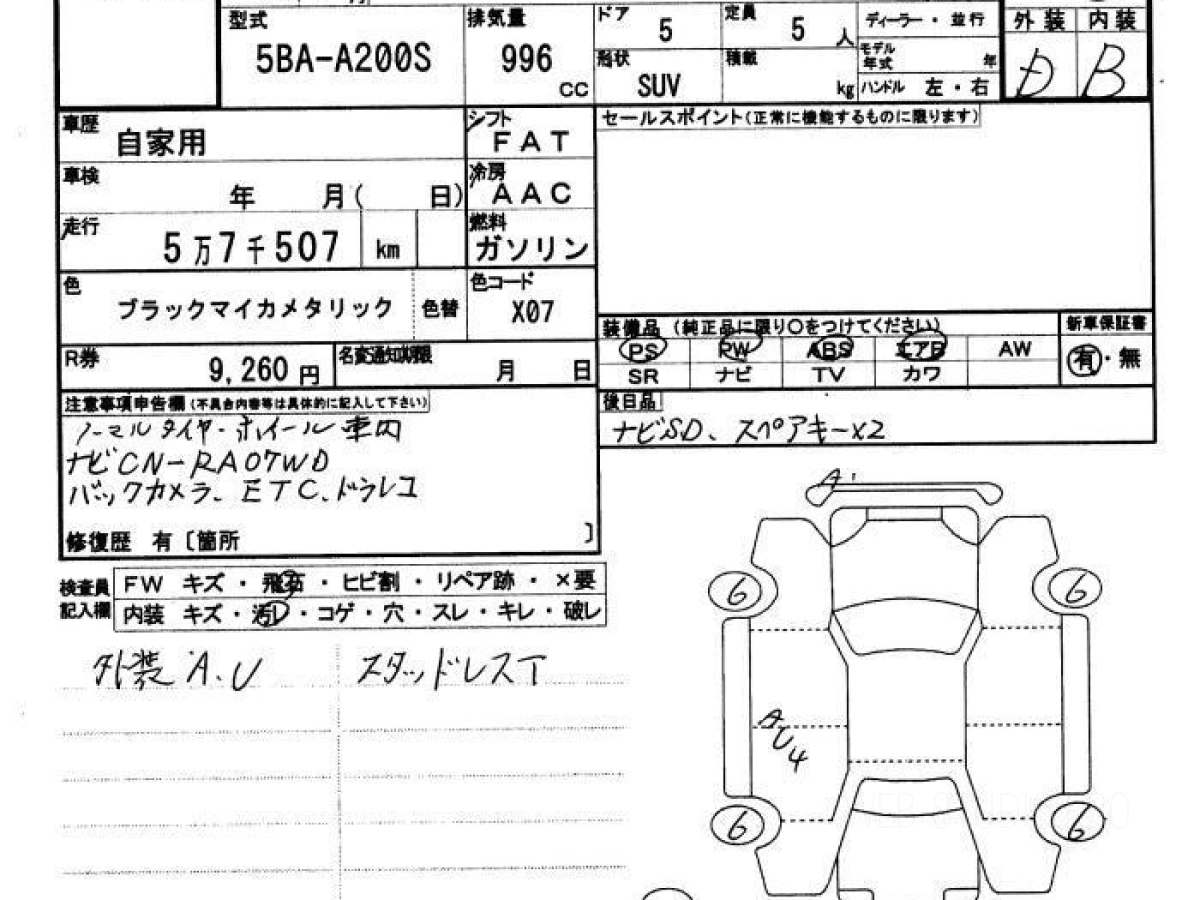 型式 排気量 ドア 5 定員 5 人 ディーラー・並行 外装 内装
5BA-A200S 996 cc 形状 SUV 積載 kg モデル年式 年 ハンドル 左・右 D B
車歴 自家用 シフト FAT セールスポイント(正常に機能するものに限ります)
車検 年 月( 日) 冷房 AAC
走行 5万7千507 km 燃料 ガソリン
色 ブラックマイカメタリック 色替 色コード X07
装備品 (純正品に限り〇をつけてください) 新車保証書
PS PW ABS エアB AW 有・無
SR ナビ TV カワ
R券 9,260円 名変通知期限 月 日
注意事項申告欄(不具合内容等は具体的に記入して下さい) 後日品
ナビSD、スペアキーx2
ノーマルタイヤ・ホイール車内
ナビCN-RA07WD
バックカメラ、ETC、ドラレコ
修復歴 有〔箇所 〕
検査員記入欄 FW キズ・飛石・ヒビ割・リペア跡・×要
内装 キズ・汚レ・コゲ・穴・スレ・キレ・破レ
外装 A.U スタッドレスT
A
6 6
A
U4
6 6